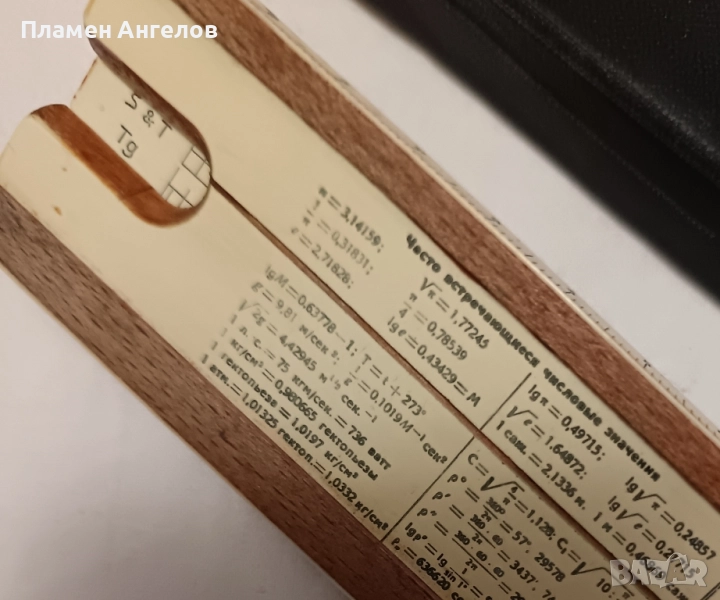 Пламен Ангелов
S & T
Tg
Часто встречающиеся числовые значения
π = 3,14159;
1/π = 0,31831;
e = 2,71828;
√π = 1,77245
π/4 = 0,78539
lg e = 0,43429 = M
lg π = 0,49715;
√e = 1,64872;
1 саж. = 2,1336 м.
lg √π = 0,24857
lg √e =
1 м =
lg M = 0,63778—1; T = t + 273°
g = 9,81 м/сек²; 1/g = 0,1019 м⁻¹ сек²
√2g = 4,42945 м½ сек.⁻¹
1 л. с. = 75 кгм/сек. = 736 ватт
1 кг/см² = 0,980665 гектопьезы
1 гектопьеза = 1,0197 кг/см²
1 атм. = 1,01325 гектоп. = 1,0332 кг/см²
C = √4/π = 1,128; C₁ = √
ρ° = 360°/2π = 57°, 29578
ρ' = 360·60/2π = 3437'
ρ" = 360·60·60/2π
lg ρ" = lg 1/sin 1"
ρ„ = 636620
BAZAR